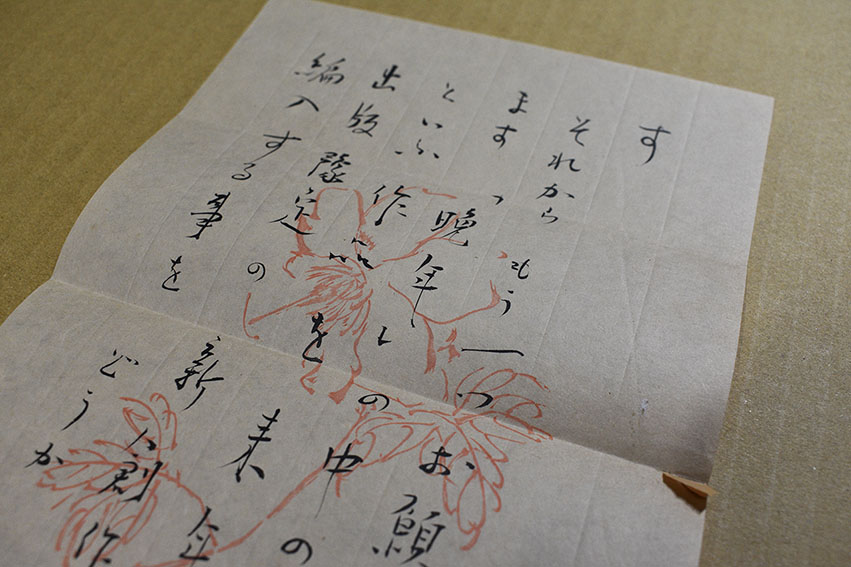 す
それからもう一つお願
ます 「晩年」の中の
といふ作品を来年
出版豫定の新人創作
編入する事をどうか